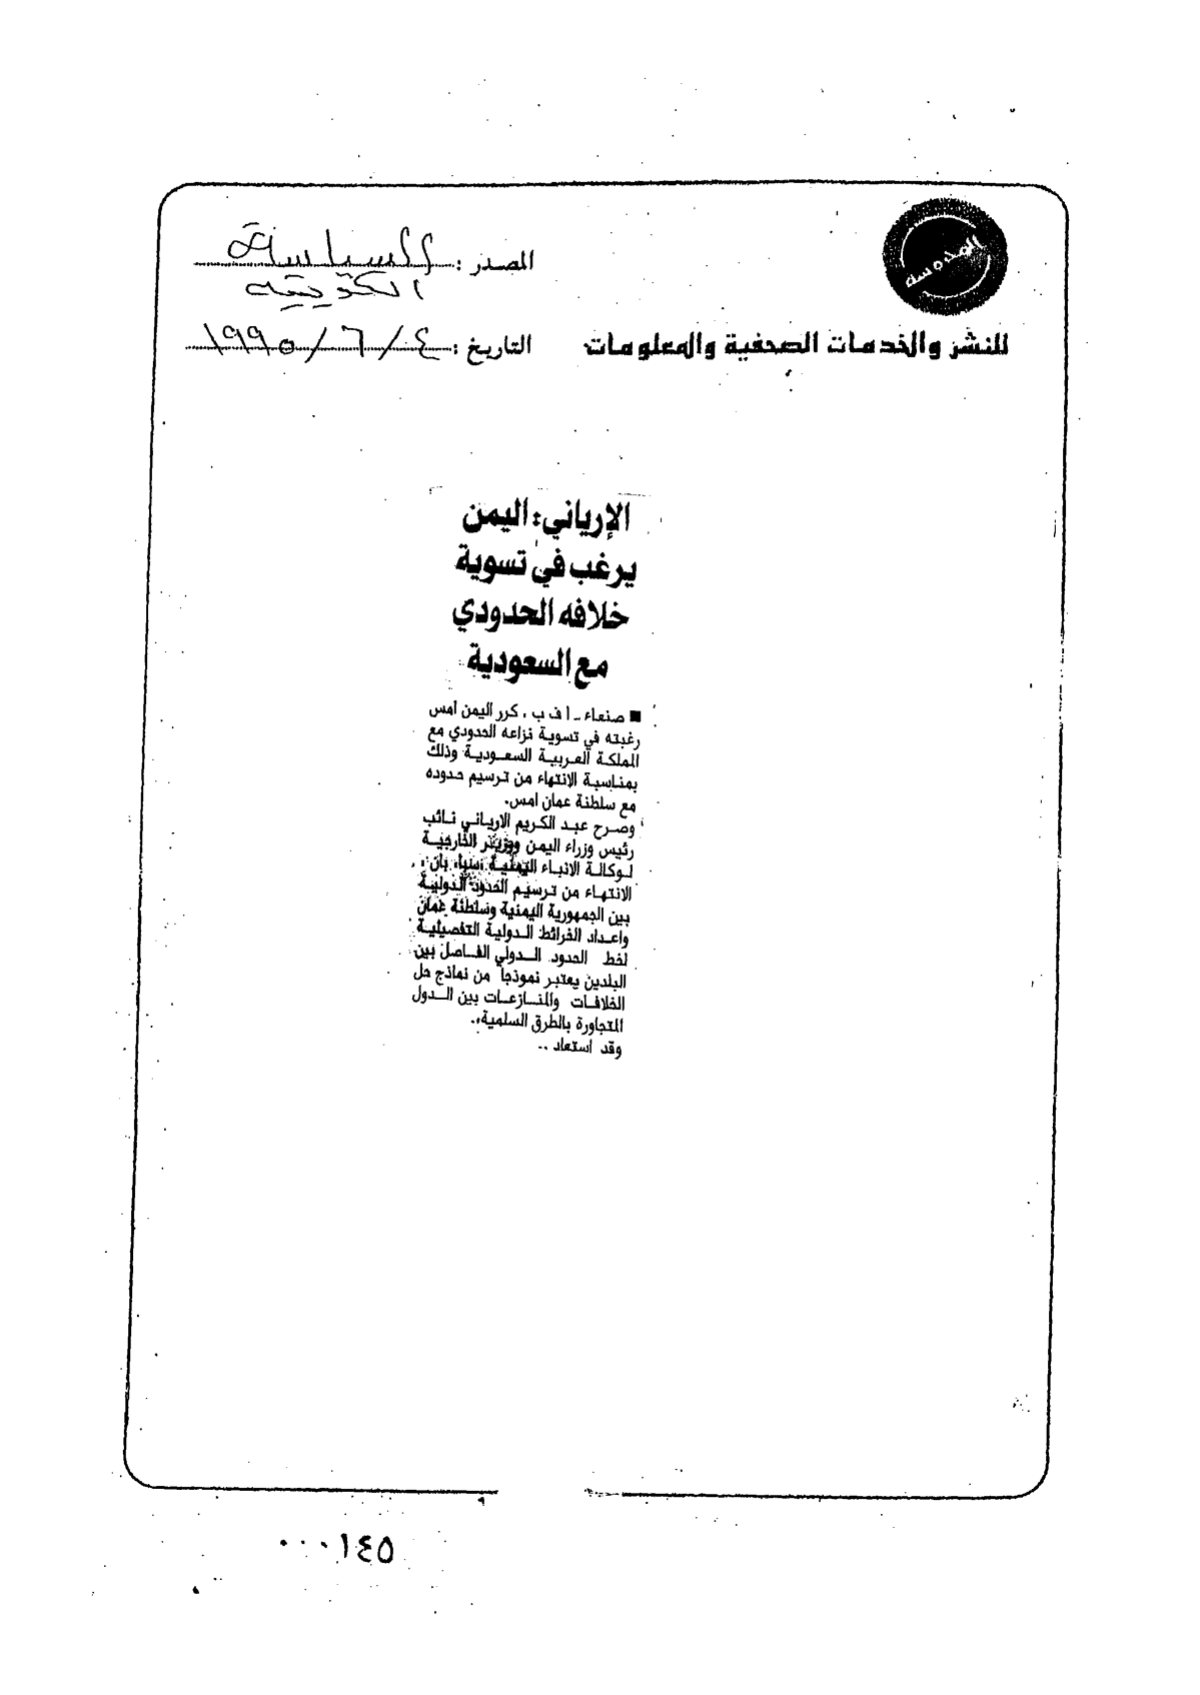 المدوسة
للنشر والخدمات الصحفية والمعلومات
المصدر : السياسة
الكويتيه
التاريخ : ٤ / ٦ / ١٩٩٥
الإرياني: اليمن
يرغب في تسوية
خلافه الحدودي
مع السعودية
■ صنعاء ـ ا ف ب . كرر اليمن امس
رغبته في تسوية نزاعه الحدودي مع
المملكة العربية السعودية وذلك
بمناسبة الانتهاء من ترسيم حدوده
مع سلطنة عمان امس.
وصرح عبد الكريم الارياني نائب
رئيس وزراء اليمن ووزير الخارجية
لوكالة الانباء اليمنية سبا، بان
الانتهاء من ترسيم الحدود الدولية
بين الجمهورية اليمنية وسلطنة عمان
واعداد الخرائط الدولية التفصيلية
لخط الحدود الدولي الفاصل بين
البلدين يعتبر نموذجا من نماذج حل
الخلافات والمنازعات بين الدول
المتجاورة بالطرق السلمية،.
وقد استعاد ..
٠٠٠١٤٥